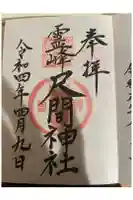 奉拝
霊峰
尺間神社
令和四年四月九日